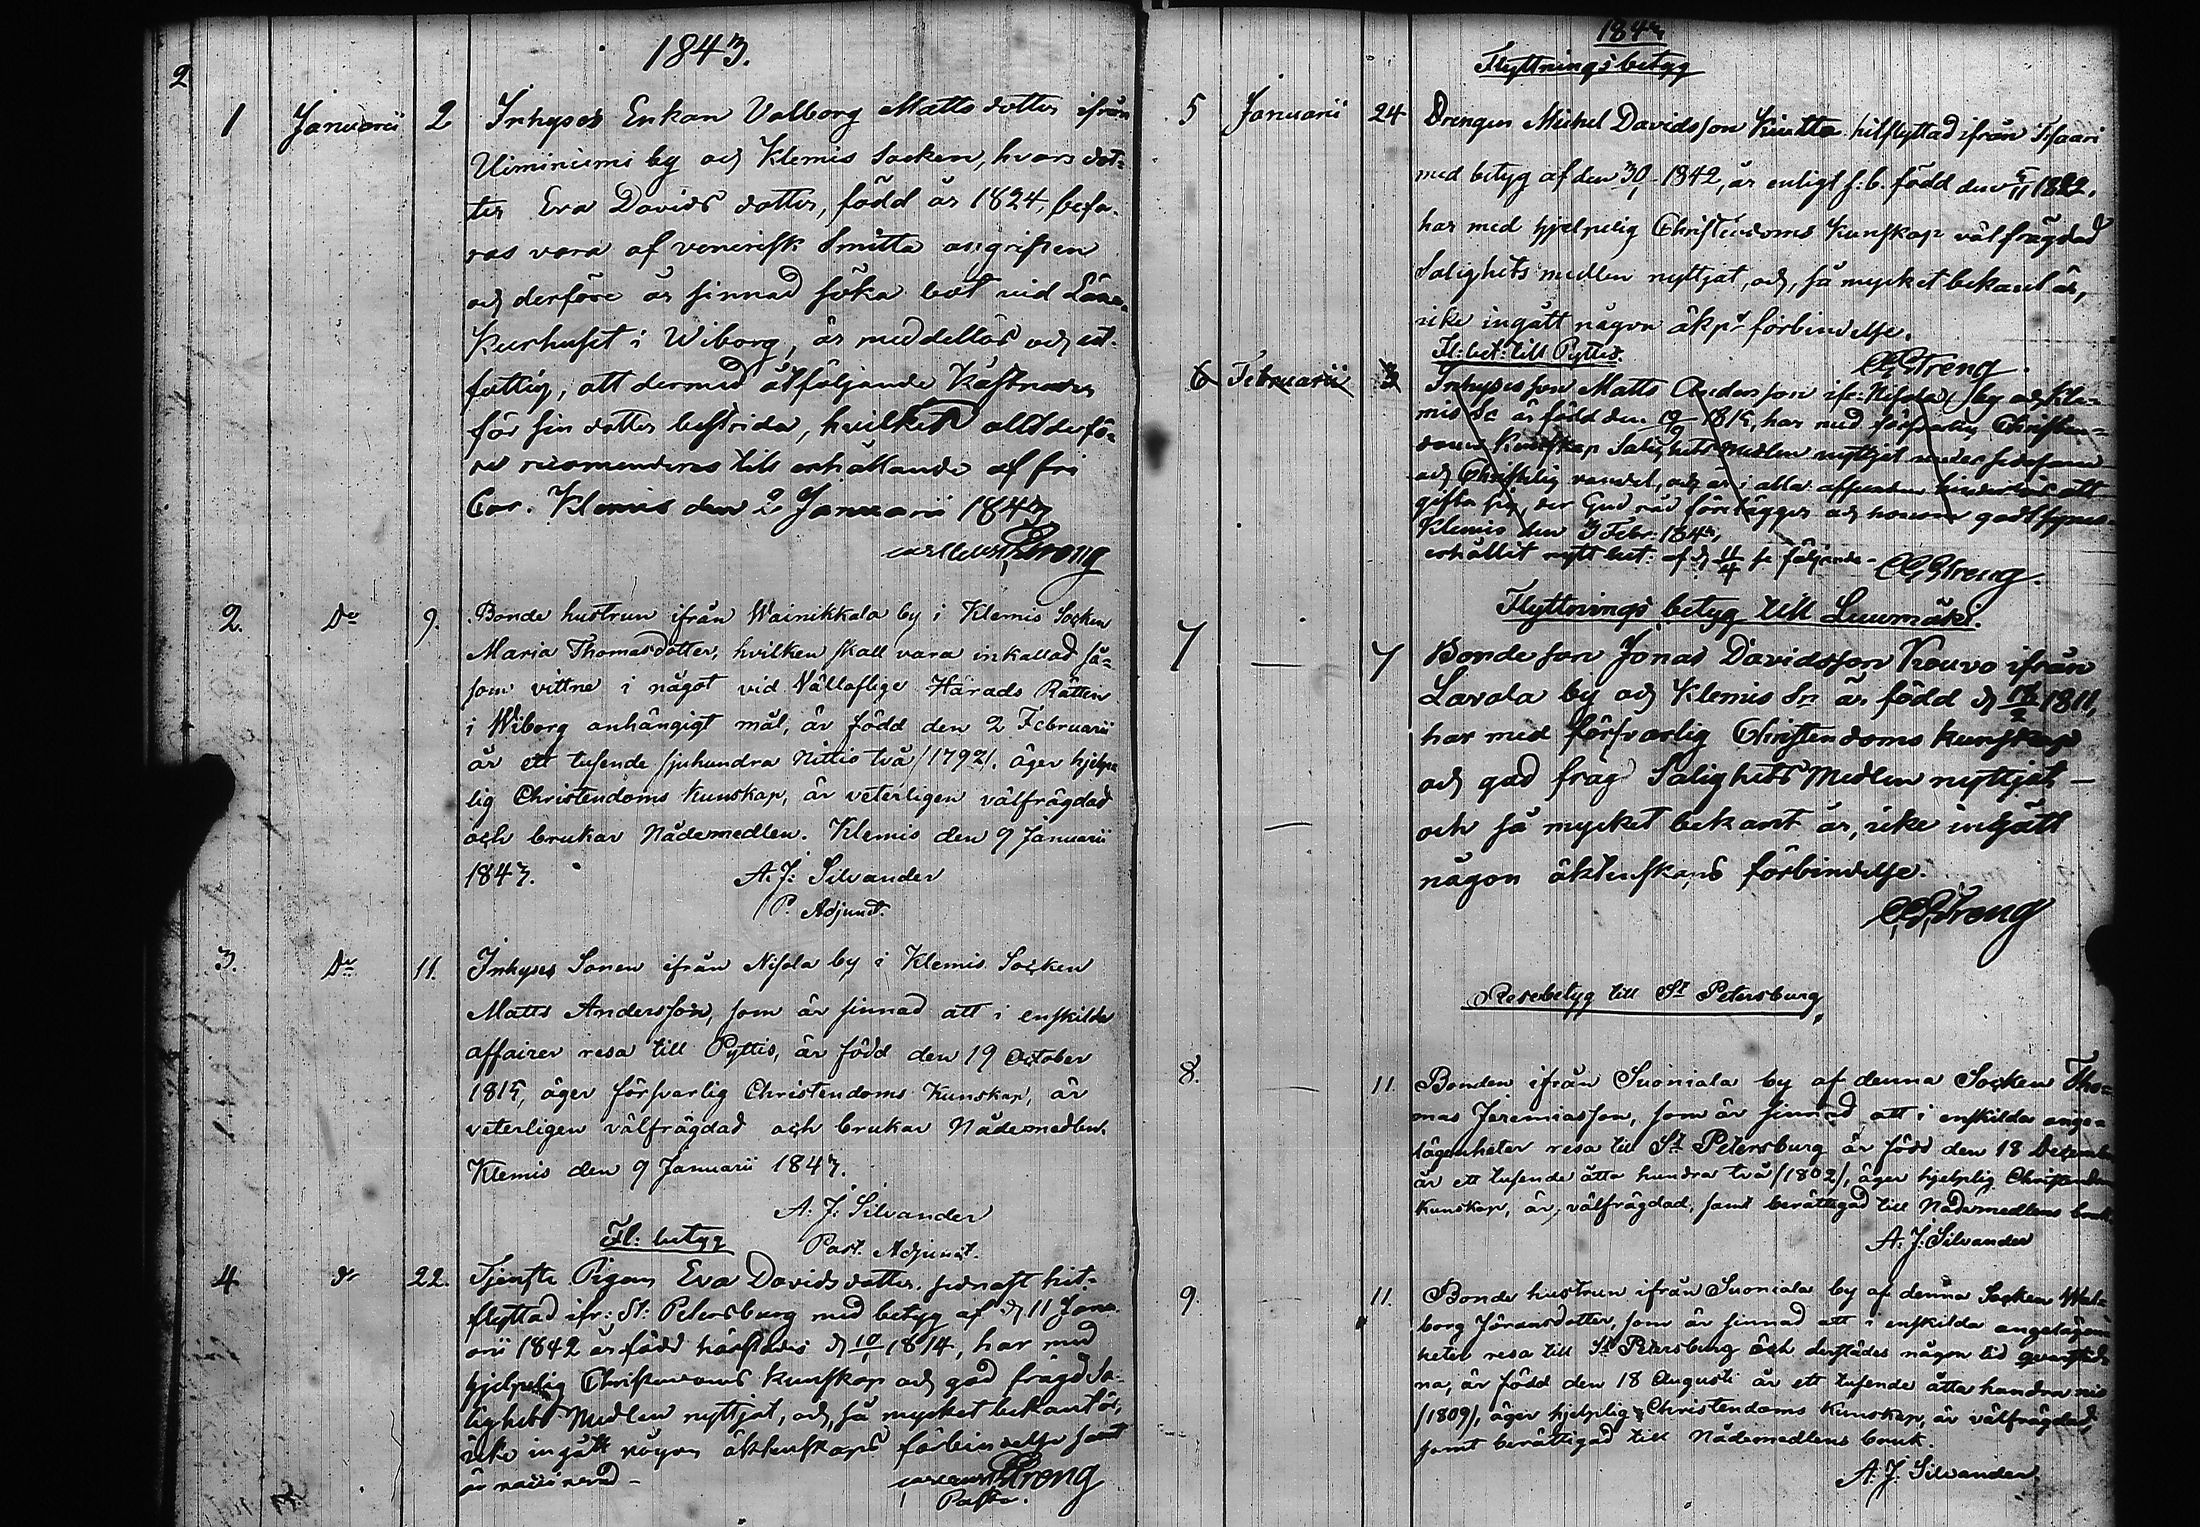 2
1843.
1 Januarii 2 Inhyses Enkan Valborg Matts dotter ifrån
Uiminiemi by och Klemis Socken, hvars dot-
ter Eva Davids dotter, född år 1824, befa-
ras vara af venerisk Smitta angripen
och derföre är sinnad söka bot vid Läns-
Kurhuset i Wiborg, är medellös och ut-
fattig, att dermed åtföljande Kostnader
för sin dotter bestrida, hvilket allt derfö-
re recomenderas till erhållande af fri
Cur. Klemis den 2 Januarii 1843
Streng
2. Do 9. Bonde hustrun ifrån Wainikkala by i Klemis Socken
Maria Thomasdotter, hvilken skall vara inkallad så-
som vittne i något vid Vällofliga Härads Rätten
i Wiborg anhängigt mål, är född den 2 Februarii
år ett tusende sjuhundra Nittio två /1792/, äger hjelpe
lig Christendoms Kunskap, är veterligen välfrägdad
och brukar Nådemedlen. Klemis den 9 Januarii
1843.
A. J: Silvander
P. Adjunct.
3. Do 11. Inhyses Sonen ifrån Nisola by i Klemis Socken
Matts Andersson, som är sinnad att i enskilda
affairer resa till Pyttis, är född den 19 October
1815, äger försvarlig Christendoms Kunskap, är
veterligen välfrägdad och brukar Nådemedlen.
Klemis den 9 Januarii 1843.
A: J: Silvander
Past. Adjunct.
Fl: betyg
4 do 22. Tjenste Pigan Eva Davidsdotter, sednast hit-
flyttad ifr: St: Petersburg med betyg af d 11 Janu-
arii 1842 är född härstädes d 10/1 1814, har med
hjelpelig Christendoms Kunskap och god frägd Sa-
lighets Medlen nyttjat, och, så mycket bekant är,
icke ingått någon äktenskaps förbindelse samt
är vaccinerad -
Streng
Pastor.
1843
Flyttningsbetyg
5 Januarii 24 Drengen Michel Davidsson tilflyttad ifrån
med betyg af den 30/1 1842, är enligt f: b. född den 1822,
har med hjelpelig Christendoms Kunskap välfrägdad
Salighets medlen nyttjat, och, så mycket bekant är,
icke ingått någon äkps förbindelse.
CG Streng.
Fl: bet: till Pyttis.
6 Februarii 3 Inhyses son Matts Andersson ifr: Nisola by och Kle-
mis Sn är född den 19/ 1815, har med försvarlig Christen-
doms Kunskap Salighets medlen nyttjat under sedesam
och Christelig vandel, och är i alla afseenden hinderlös att
gifta sig, der Gud råd förelägger och honom godt synes.
Klemis den 3 Febr: 1843,
erhållit nytt bet: af d 11/4 se följande - CG Streng.
Flyttnings betyg till Luumäki.
7 — 7 Bonde son Jonas Davidsson Kouvo ifrån
Lavola by och Klemis Sn är född d 1811,
har med försvarlig Christendoms kunskap
och god frägd Salighets Medlen nyttjat —
och så mycket bekant är, icke ingått
någon äktenskaps förbindelse.
CG Streng
Resebetyg till St Petersburg,
8. — 11. Bonden ifrån Suoniala by af denna Socken Tho-
mas Jeremiasson, som är sinnad att i enskilda ange-
lägenheter resa till St Petersburg är född den 18 December
år ett tusende åtta hundra två /1802/, äger hjelplig Christendoms
Kunskap, är välfrägdad, samt berättigad till Nådemedlens bruk.
A. J: Silvander
9. — 11. Bonde hustrun ifrån Suoniala by af denna Socken Wal-
borg Jöransdotter, som är sinnad att i enskilda angelägen-
heter resa till St Petersburg och derstädes någon tid
na, är född den 18 Augusti år ett tusende åtta hundra nio
/1809/, äger hjelplig Christendoms Kunskap, är välfrägdad,
samt berättigad till Nådemedlens bruk.
A. J. Silvander.